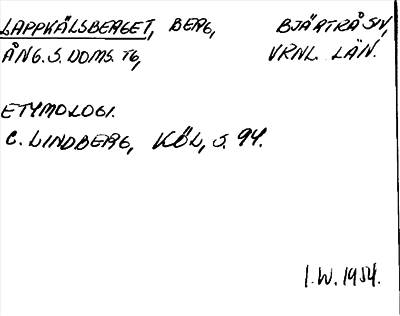 LAPPKÄLSBERGET, BERG, BJÄRTRÅ SN,
ÅNG. S. DOMS. TG, VRNL. LÄN.
ETYMOLOGI.
C. LINDBERG, KÖL, S. 94.
I.W. 1954.